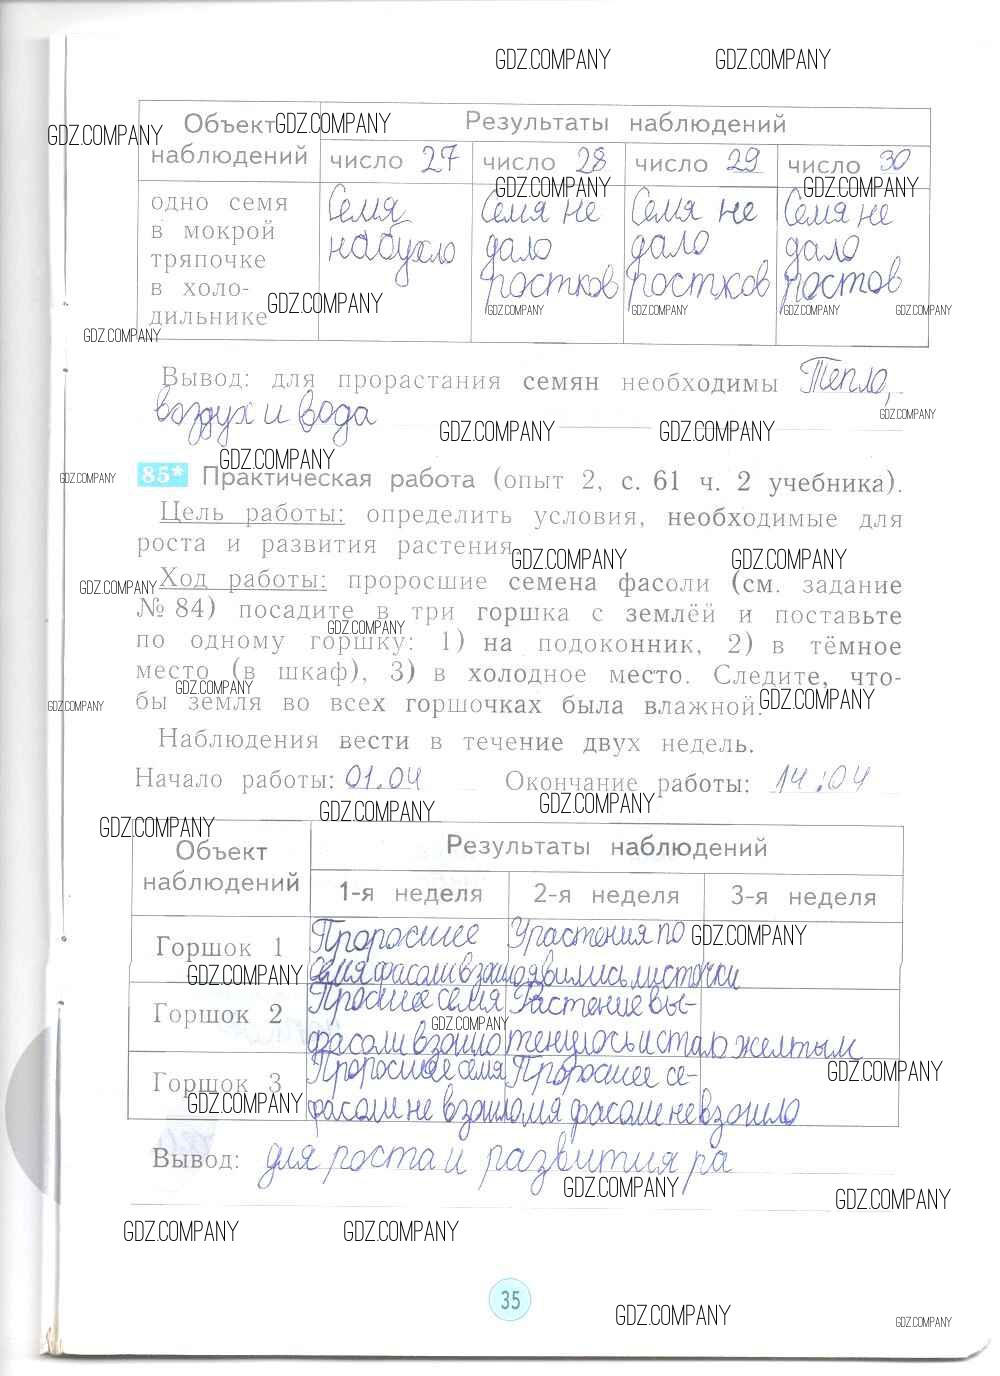 GDZ.COMPANY GDZ.COMPANY
Объект GDZ.COMPANY Результаты наблюдений
GDZ.COMPANY
наблюдений число 27 число 28 число 29 число 30
GDZ.COMPANY GDZ.COMPANY
одно семя Семя Семя не Семя не Семя не
в мокрой набухло дало дало дало
тряпочке ростков ростков ростов
в холо-
GDZ.COMPANY GDZ.COMPANY GDZ.COMPANY GDZ.COMPANY GDZ.COMPANY
дильнике
GDZ.COMPANY
Вывод: для прорастания семян необходимы Тепло,
воздух и вода GDZ.COMPANY
GDZ.COMPANY GDZ.COMPANY
GDZ.COMPANY
GDZ.COMPANY 85* Практическая работа (опыт 2, с. 61 ч. 2 учебника).
Цель работы: определить условия, необходимые для
роста и развития растения
GDZ.COMPANY GDZ.COMPANY
GDZ.COMPANY Ход работы: проросшие семена фасоли (см. задание
№ 84) посадите в три горшка с землёй и поставьте
GDZ.COMPANY
по одному горшку: 1) на подоконник, 2) в тёмное
место (в шкаф), 3) в холодное место. Следите, что-
GDZ.COMPANY
GDZ.COMPANY бы земля во всех горшочках была влажной. GDZ.COMPANY
Наблюдения вести в течение двух недель.
Начало работы: 01.04 Окончание работы: 14.04
GDZ.COMPANY GDZ.COMPANY
GDZ.COMPANY
Объект Результаты наблюдений
наблюдений 1-я неделя 2-я неделя 3-я неделя
Горшок 1 Проросшее У растения по GDZ.COMPANY
GDZ.COMPANY семя фасоли взошло явились листочки
Горшок 2 Просшее семя Растение вы-
GDZ.COMPANY
фасоли взошло тенулось и стало желтым
Горшок 3 Проросшее семя Проросшее се- GDZ.COMPANY
GDZ.COMPANY фасоли не взошло мя фасоли не взошло
Вывод: для роста и развития ра
GDZ.COMPANY GDZ.COMPANY
GDZ.COMPANY GDZ.COMPANY
35
GDZ.COMPANY GDZ.COMPANY